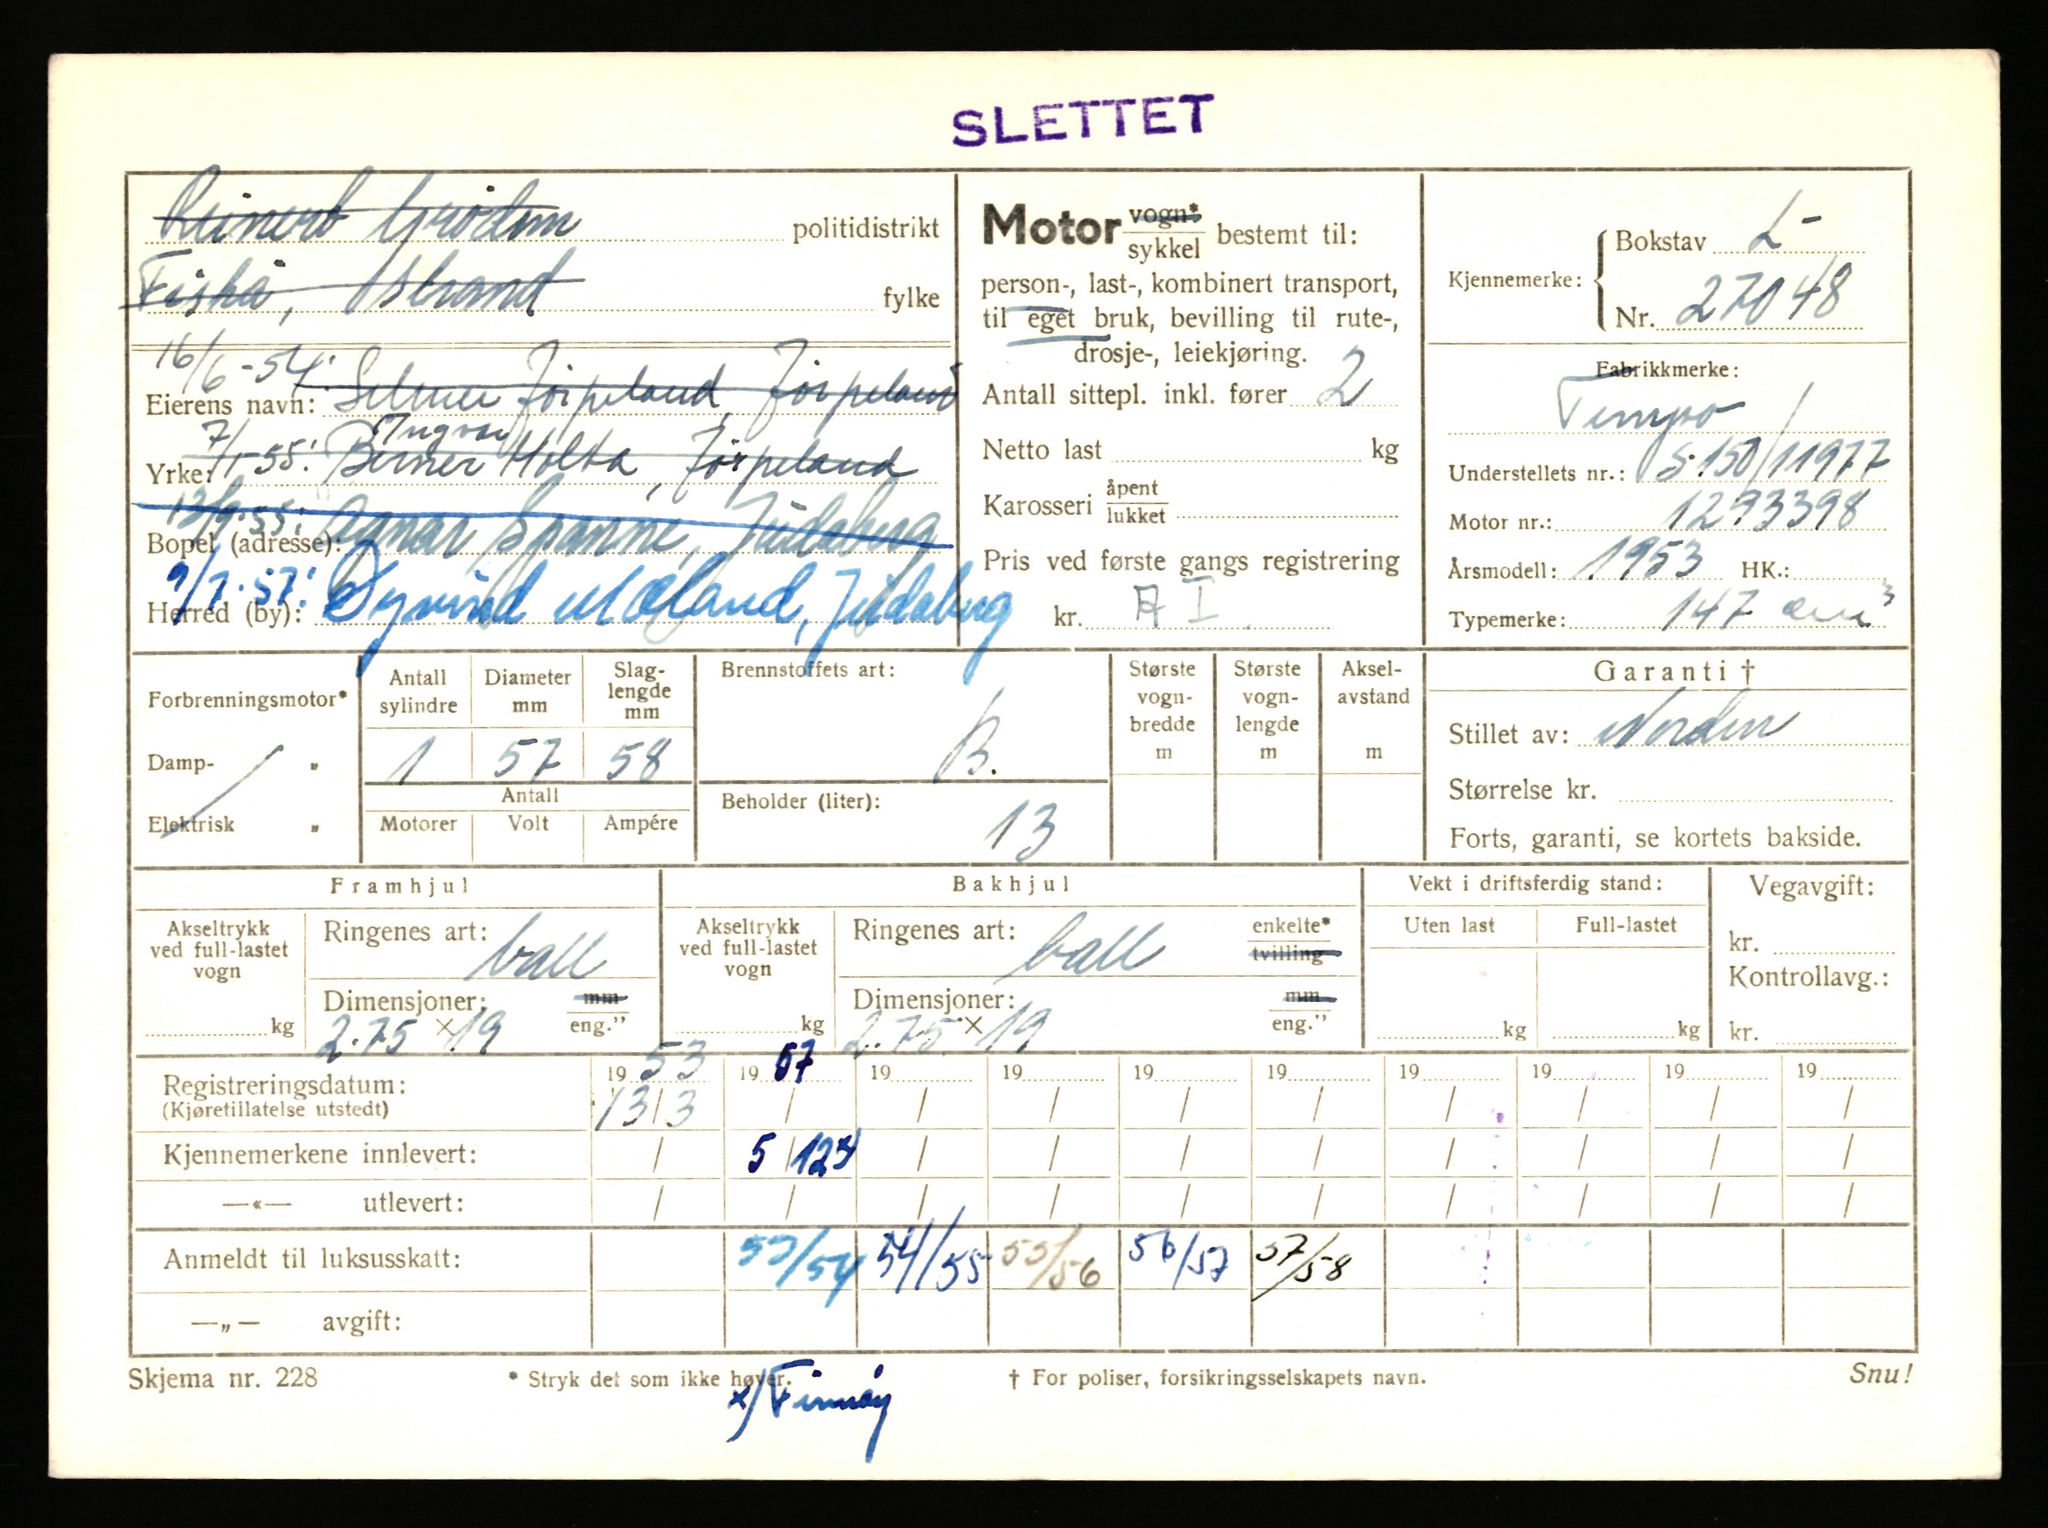 SLETTET
Reinert Grödem politidistrikt
Fiskå, Strand fylke
16/6-54: Selmer Jörpeland, Jörpeland
Eierens navn:
Ingvar
Yrke: 7/1-55: Berner Holta, Jörpeland
13/9-55: Agnar Spanne, Judaberg
Bopel (adresse):
9/7-57: Öyvind Mæland, Judaberg
Herred (by):
Motor vogn* / sykkel bestemt til:
person-, last-, kombinert transport,
til eget bruk, bevilling til rute-,
drosje-, leiekjøring.
Antall sittepl. inkl. fører 2
Netto last kg
Karosseri åpent / lukket
Pris ved første gangs registrering
kr. A I
Kjennemerke: Bokstav L-
Nr. 27048
Fabrikkmerke:
Tempo
Understellets nr.: S.150/11977
Motor nr.: 1293398
Årsmodell: 1953 HK.:
Typemerke: 147 cm³
Forbrenningsmotor*
Damp- "
Elektrisk "
Antall sylindre Diameter mm Slag-lengde mm
1 57 58
Antall
Motorer Volt Ampére
Brennstoffets art:
B.
Beholder (liter):
13
Største vogn-bredde m
Største vogn-lengde m
Aksel-avstand m
Garanti †
Stillet av: Norden
Størrelse kr.
Forts, garanti, se kortets bakside.
Framhjul
Akseltrykk ved full-lastet vogn
kg
Ringenes art: ball
Dimensjoner: mm / eng."
2.75 × 19
Bakhjul
Akseltrykk ved full-lastet vogn
kg
Ringenes art: ball enkelte* / tvilling
Dimensjoner: mm / eng."
2.75 × 19
Vekt i driftsferdig stand:
Uten last Full-lastet
kg kg
Vegavgift:
kr.
Kontrollavg.:
kr.
Registreringsdatum: 19 53 19 57 19 19 19 19 19 19 19 19
(Kjøretillatelse utstedt) 13/3 / / / / / / / / /
Kjennemerkene innlevert: / 5/12 x) / / / / / / / /
—«— utlevert: / / / / / / / / / /
Anmeldt til luksusskatt: 53/54 54/55 55/56 56/57 57/58
—„— avgift:
Skjema nr. 228 * Stryk det som ikke høver. † For poliser, forsikringsselskapets navn. Snu!
x) Finnöy